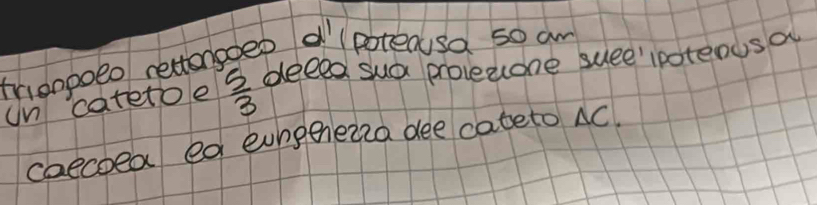 triangolo rettangolo d'ipotenusa 50 cm
un cateto è 5/3 della sua proiezione sull'ipotenusa
calcola la lunghezza del cateto AC.